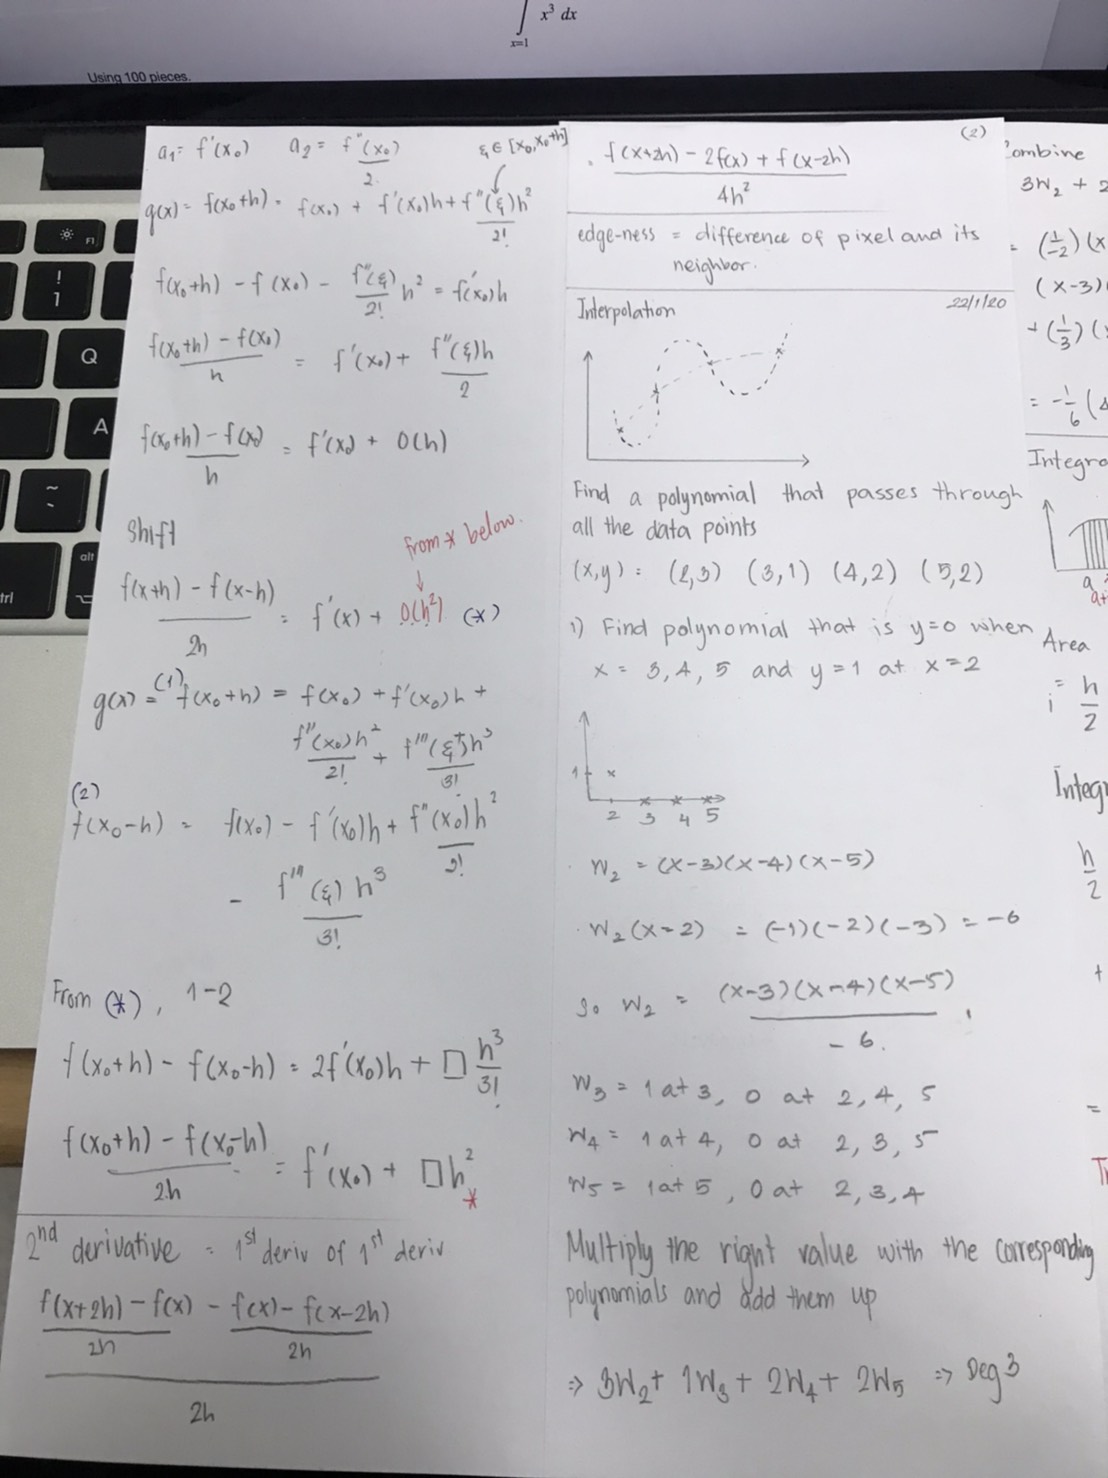 ∫ x³ dx
x=1
Using 100 pieces.
a₁ = f'(x₀) a₂ = f''(x₀)/2 ξ ∈ [x₀, x₀+h]
g(x) = f(x₀+h) = f(x₀) + f'(x₀)h + f''(ξ)h²/2!
f(x₀+h) - f(x₀) - f''(ξ)/2! h² = f'(x₀)h
(f(x₀+h) - f(x₀))/h = f'(x₀) + f''(ξ)h/2
(f(x₀+h) - f(x₀))/h = f'(x₀) + O(h)
Shift
from * below.
(f(x+h) - f(x-h))/2h = f'(x) + O(h²) (*)
g(x) = (1) f(x₀+h) = f(x₀) + f'(x₀)h +
f''(x₀)h²/2! + f'''(ξ⁺)h³/3!
(2)
f(x₀-h) = f(x₀) - f'(x₀)h + f''(x₀)h²/2!
- f'''(ξ)h³/3!
From (*), 1-2
f(x₀+h) - f(x₀-h) = 2f'(x₀)h + □ h³/3!
(f(x₀+h) - f(x₀-h))/2h = f'(x₀) + □h² *
2nd derivative = 1st deriv of 1st deriv
(f(x+2h) - f(x))/2h - (f(x) - f(x-2h))/2h
2h
(2)
(f(x+2h) - 2f(x) + f(x-2h))/4h²
edge-ness = difference of pixel and its
neighbor.
Interpolation 22/1/20
Find a polynomial that passes through
all the data points
(x,y) = (2,3) (3,1) (4,2) (5,2)
1) Find polynomial that is y=0 when
x = 3, 4, 5 and y=1 at x=2
1
2 3 4 5
W₂ = (x-3)(x-4)(x-5)
W₂(x=2) = (-1)(-2)(-3) = -6
So W₂ = (x-3)(x-4)(x-5)/-6.
W₃ = 1 at 3, 0 at 2, 4, 5
W₄ = 1 at 4, 0 at 2, 3, 5
W₅ = 1 at 5, 0 at 2, 3, 4
Multiply the right value with the corresponding
polynomials and add them up
⇒ 3W₂ + 1W₃ + 2W₄ + 2W₅ ⇒ Deg 3
Combine
3W₂ + 2
= (1/-2)(x
(x-3)
+ (1/3)(
= -1/6 (
Integra
a
Area
= h/2
i
Integr
h/2
+
=